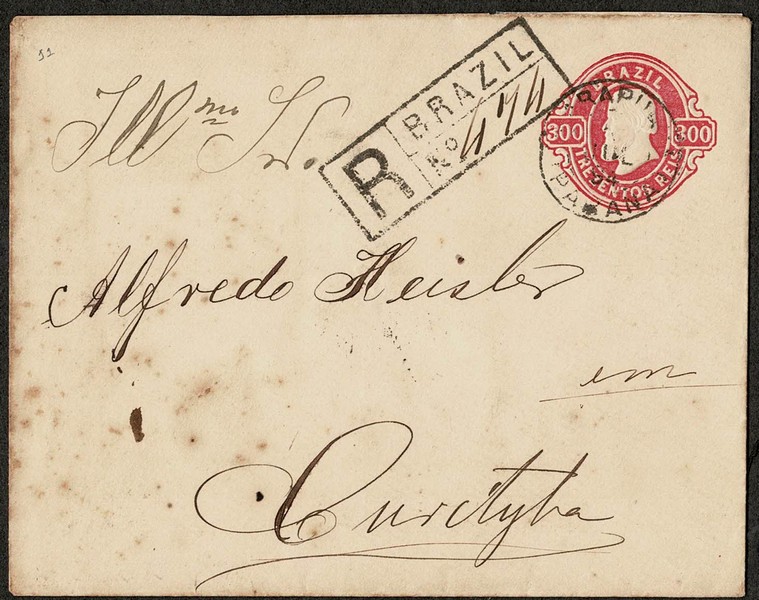 BRAZIL
300 300
TREZENTOS REIS
PARANÁ
R BRAZIL
Nº 474
Illmo Sr.
Alfredo Heisler
em
Curityba